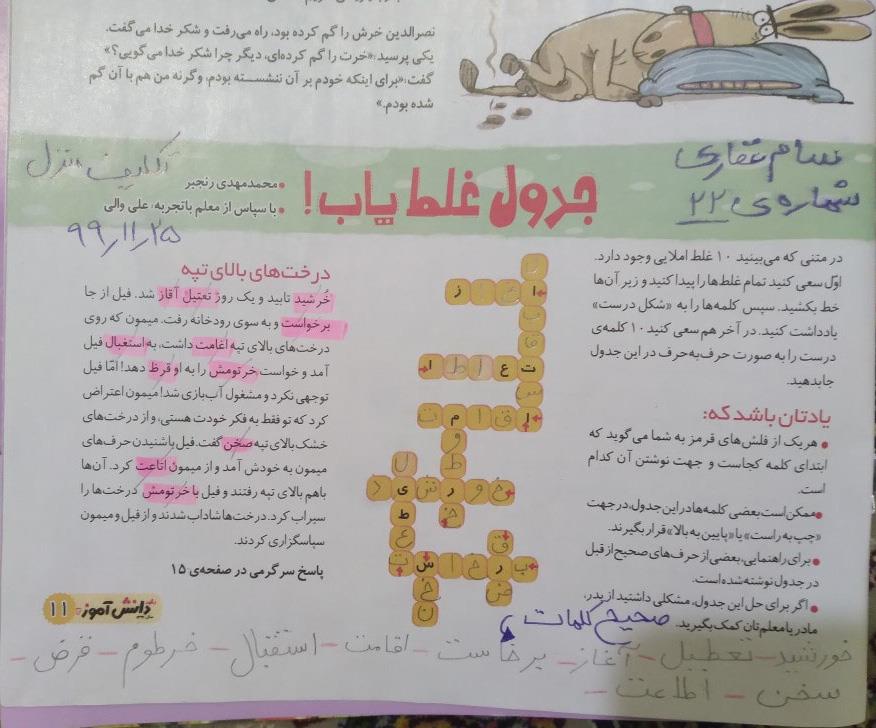 نصرالدین خرش را گم کرده بود، راه می‌رفت و شکر خدا می‌گفت.
یکی پرسید: «خرت را گم کرده‌ای، دیگر چرا شکر خدا می‌گویی؟»
گفت: «برای اینکه خودم بر آن ننشسته بودم، وگرنه من هم با آن گم
شده بودم.»
سام غفاری
شماره‌ی ۲۲
جدول غلط یاب!
• محمدمهدی رنجبر
• با سپاس از معلم باتجربه: علی والی
تکلیف منزل
۹۹٫۱۱٫۲۵
در متنی که می‌بینید ۱۰ غلط املایی وجود دارد.
اوّل سعی کنید تمام غلط‌ها را پیدا کنید و زیر آن‌ها
خط بکشید. سپس کلمه‌ها را به «شکل درست»
یادداشت کنید. در آخر هم سعی کنید ۱۰ کلمه‌ی
درست را به صورت حرف‌به‌حرف در این جدول
جا بدهید.
یادتان باشد که:
• هر یک از فلش‌های قرمز به شما می‌گوید که
ابتدای کلمه کجاست و جهت نوشتن آن کدام
است.
• ممکن است بعضی کلمه‌ها در این جدول، در جهت
«چپ به راست» یا «پایین به بالا» قرار بگیرند.
• برای راهنمایی، بعضی از حرف‌های صحیح از قبل
در جدول نوشته شده است.
• اگر برای حل این جدول، مشکلی داشتید از پدر،
مادر یا معلم‌تان کمک بگیرید.
درخت‌های بالای تپه
خُرشید تابید و یک روز تعتیل آقاز شد. فیل از جا
برخواست و به سوی رودخانه رفت. میمون که روی
درخت‌های بالای تپه اغامت داشت، به استغبال فیل
آمد و خواست خرتومش را به او قرظ دهد! امّا فیل
توجهی نکرد و مشغول آب‌بازی شد! میمون اعتراض
کرد که تو فقط به فکر خودت هستی، و از درخت‌های
خشک بالای تپه صخن گفت. فیل با شنیدن حرف‌های
میمون به خودش آمد و از میمون اتاعت کرد. آن‌ها
باهم بالای تپه رفتند و فیل با خرتومش درخت‌ها را
سیراب کرد. درخت‌ها شاداب شدند و از فیل و میمون
سپاسگزاری کردند.
پاسخ سرگرمی در صفحه‌ی ۱۵
دانش‌آموز ۱۱
صحیح کلمات
خورشید – تعطیل – آغاز – برخاست – اقامت – استقبال – خرطوم – قرض –
سخن – اطاعت –